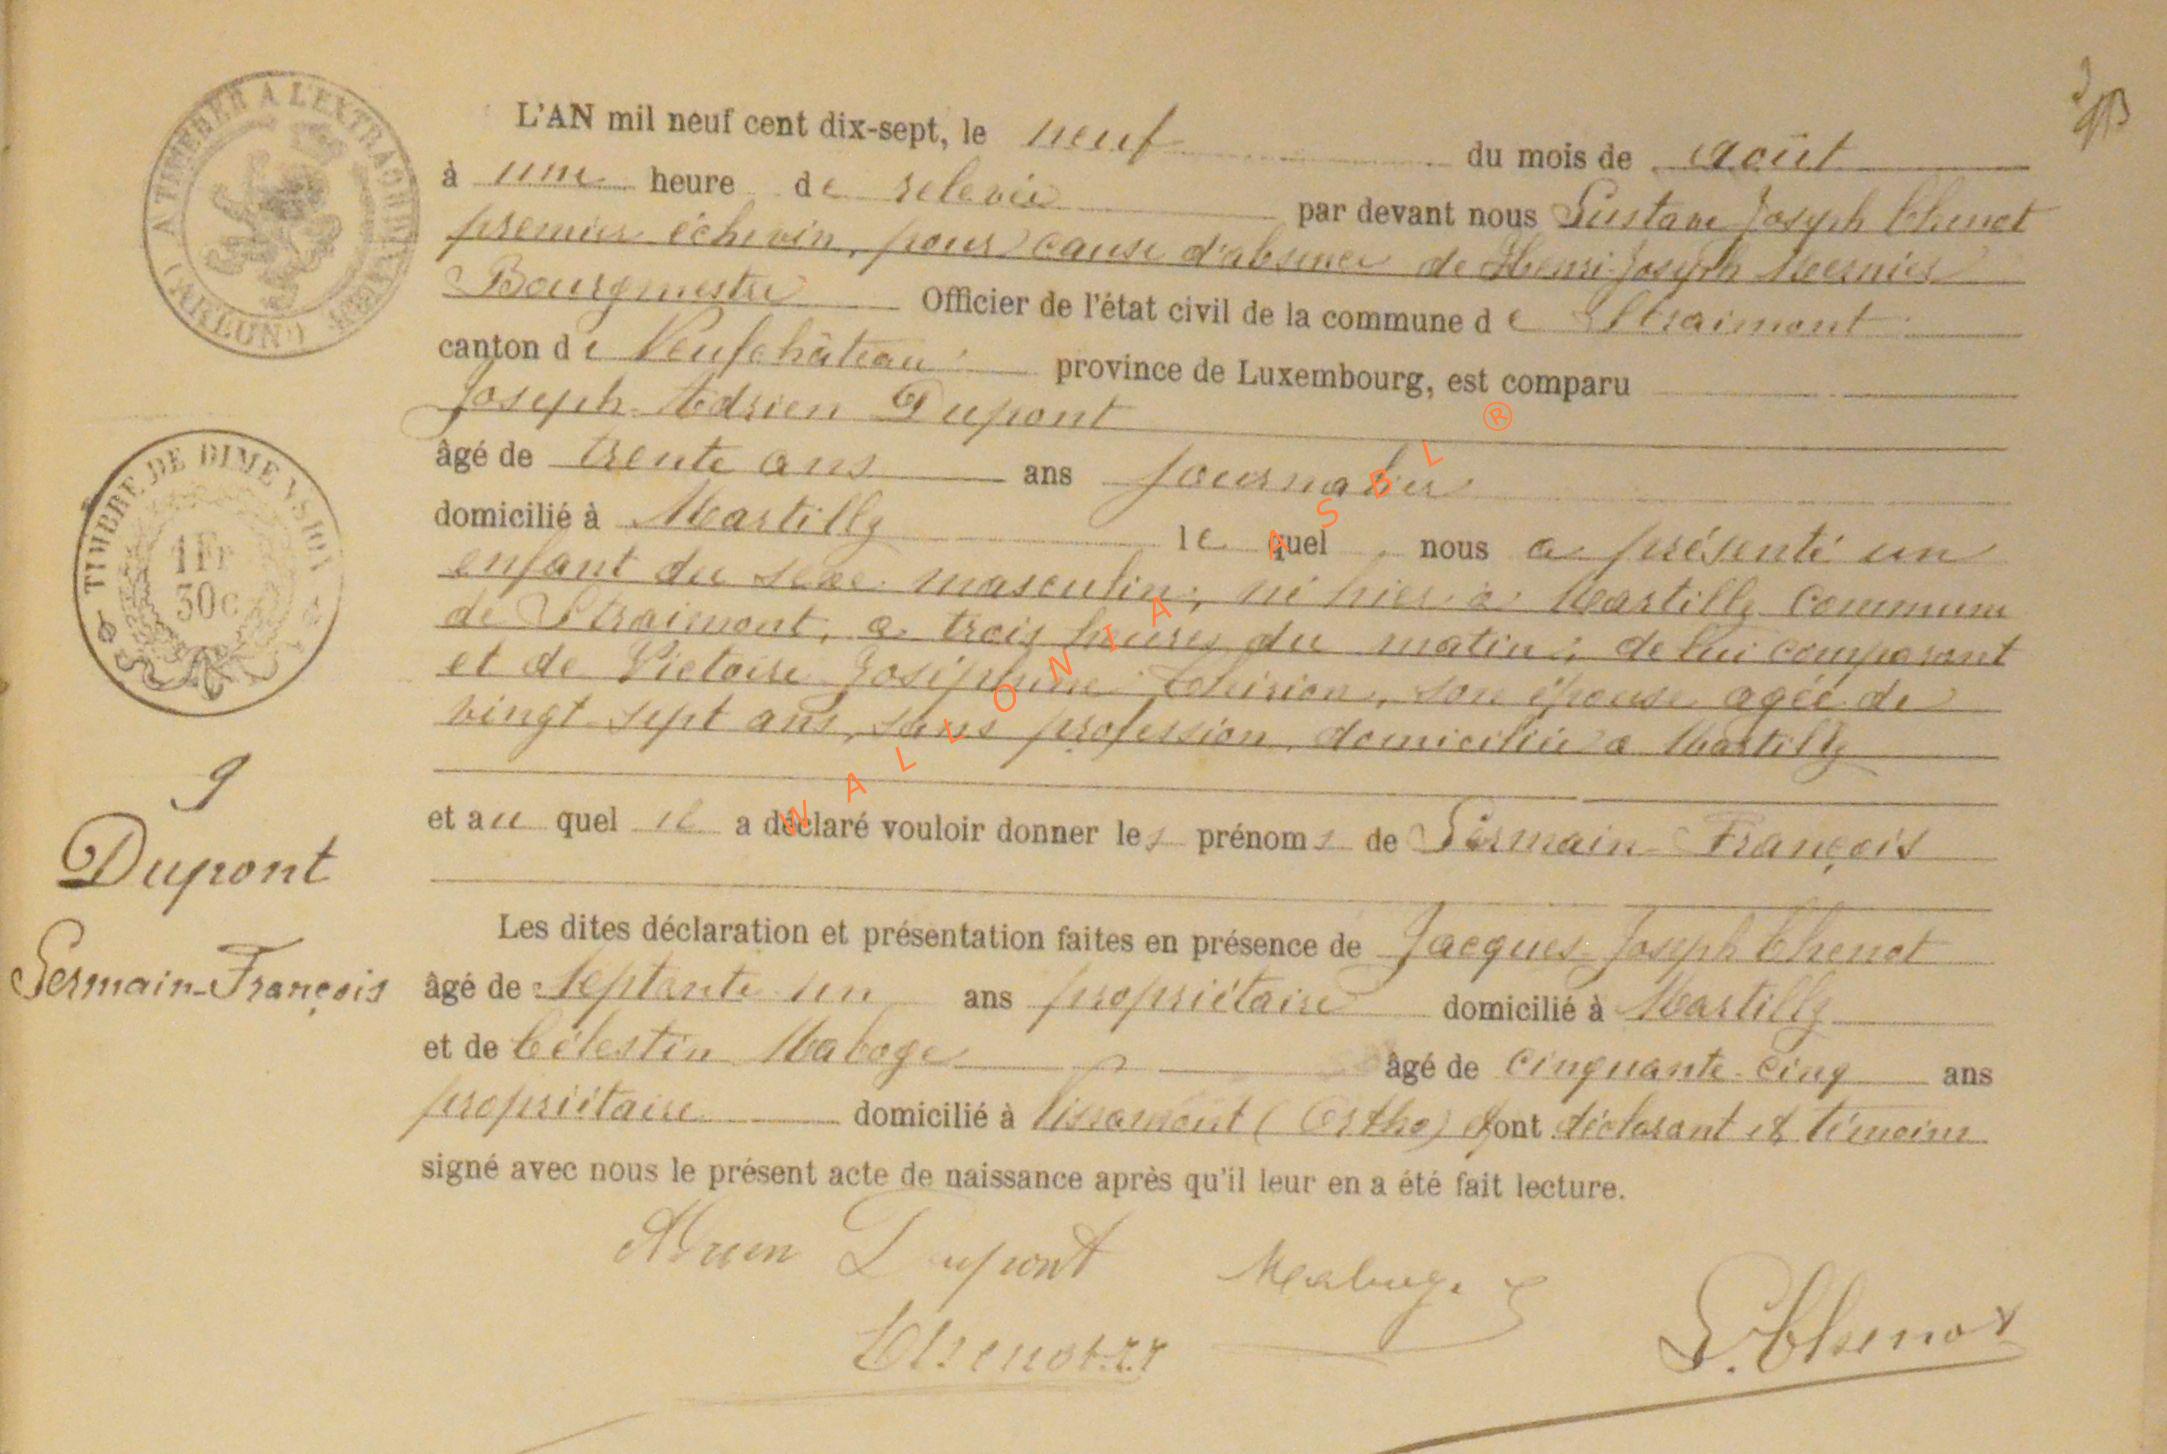 A TIMBRER A L'EXTRAORDINAIRE
(ARLON)
TIMBRE DE DIMENSION
1 Fr
30 c
L'AN mil neuf cent dix-sept, le neuf du mois de août
à une heure de relevée par devant nous Gustave Joseph Thenot
premier échevin, pour cause d'absence de Henri Joseph Mernier
Bourgmestre Officier de l'état civil de la commune de Straimont
canton de Neufchâteau province de Luxembourg, est comparu
Joseph Adrien Dupont
âgé de trente ans ans journalier
domicilié à Martilly lequel nous a présenté un
enfant du sexe masculin, né hier à Martilly commune
de Straimont, a trois heures du matin, de lui comparant
et de Victoire Joséphine Thirion, son épouse agée de
vingt sept ans, sans profession, domiciliée a Martilly
et au quel il a déclaré vouloir donner les prénoms de Germain François
Les dites déclaration et présentation faites en présence de Jacques Joseph Thenot
âgé de septante un ans propriétaire domicilié à Martilly
et de Célestin Maboge âgé de cinquante-cinq ans
propriétaire domicilié à (Ortho) ont déclarant et témoins
signé avec nous le présent acte de naissance après qu'il leur en a été fait lecture.
9
Dupont
Germain-François
Adrien Dupont
Maboge
Thenot J.J
G. Thenot
WALLONIA ASBL ®